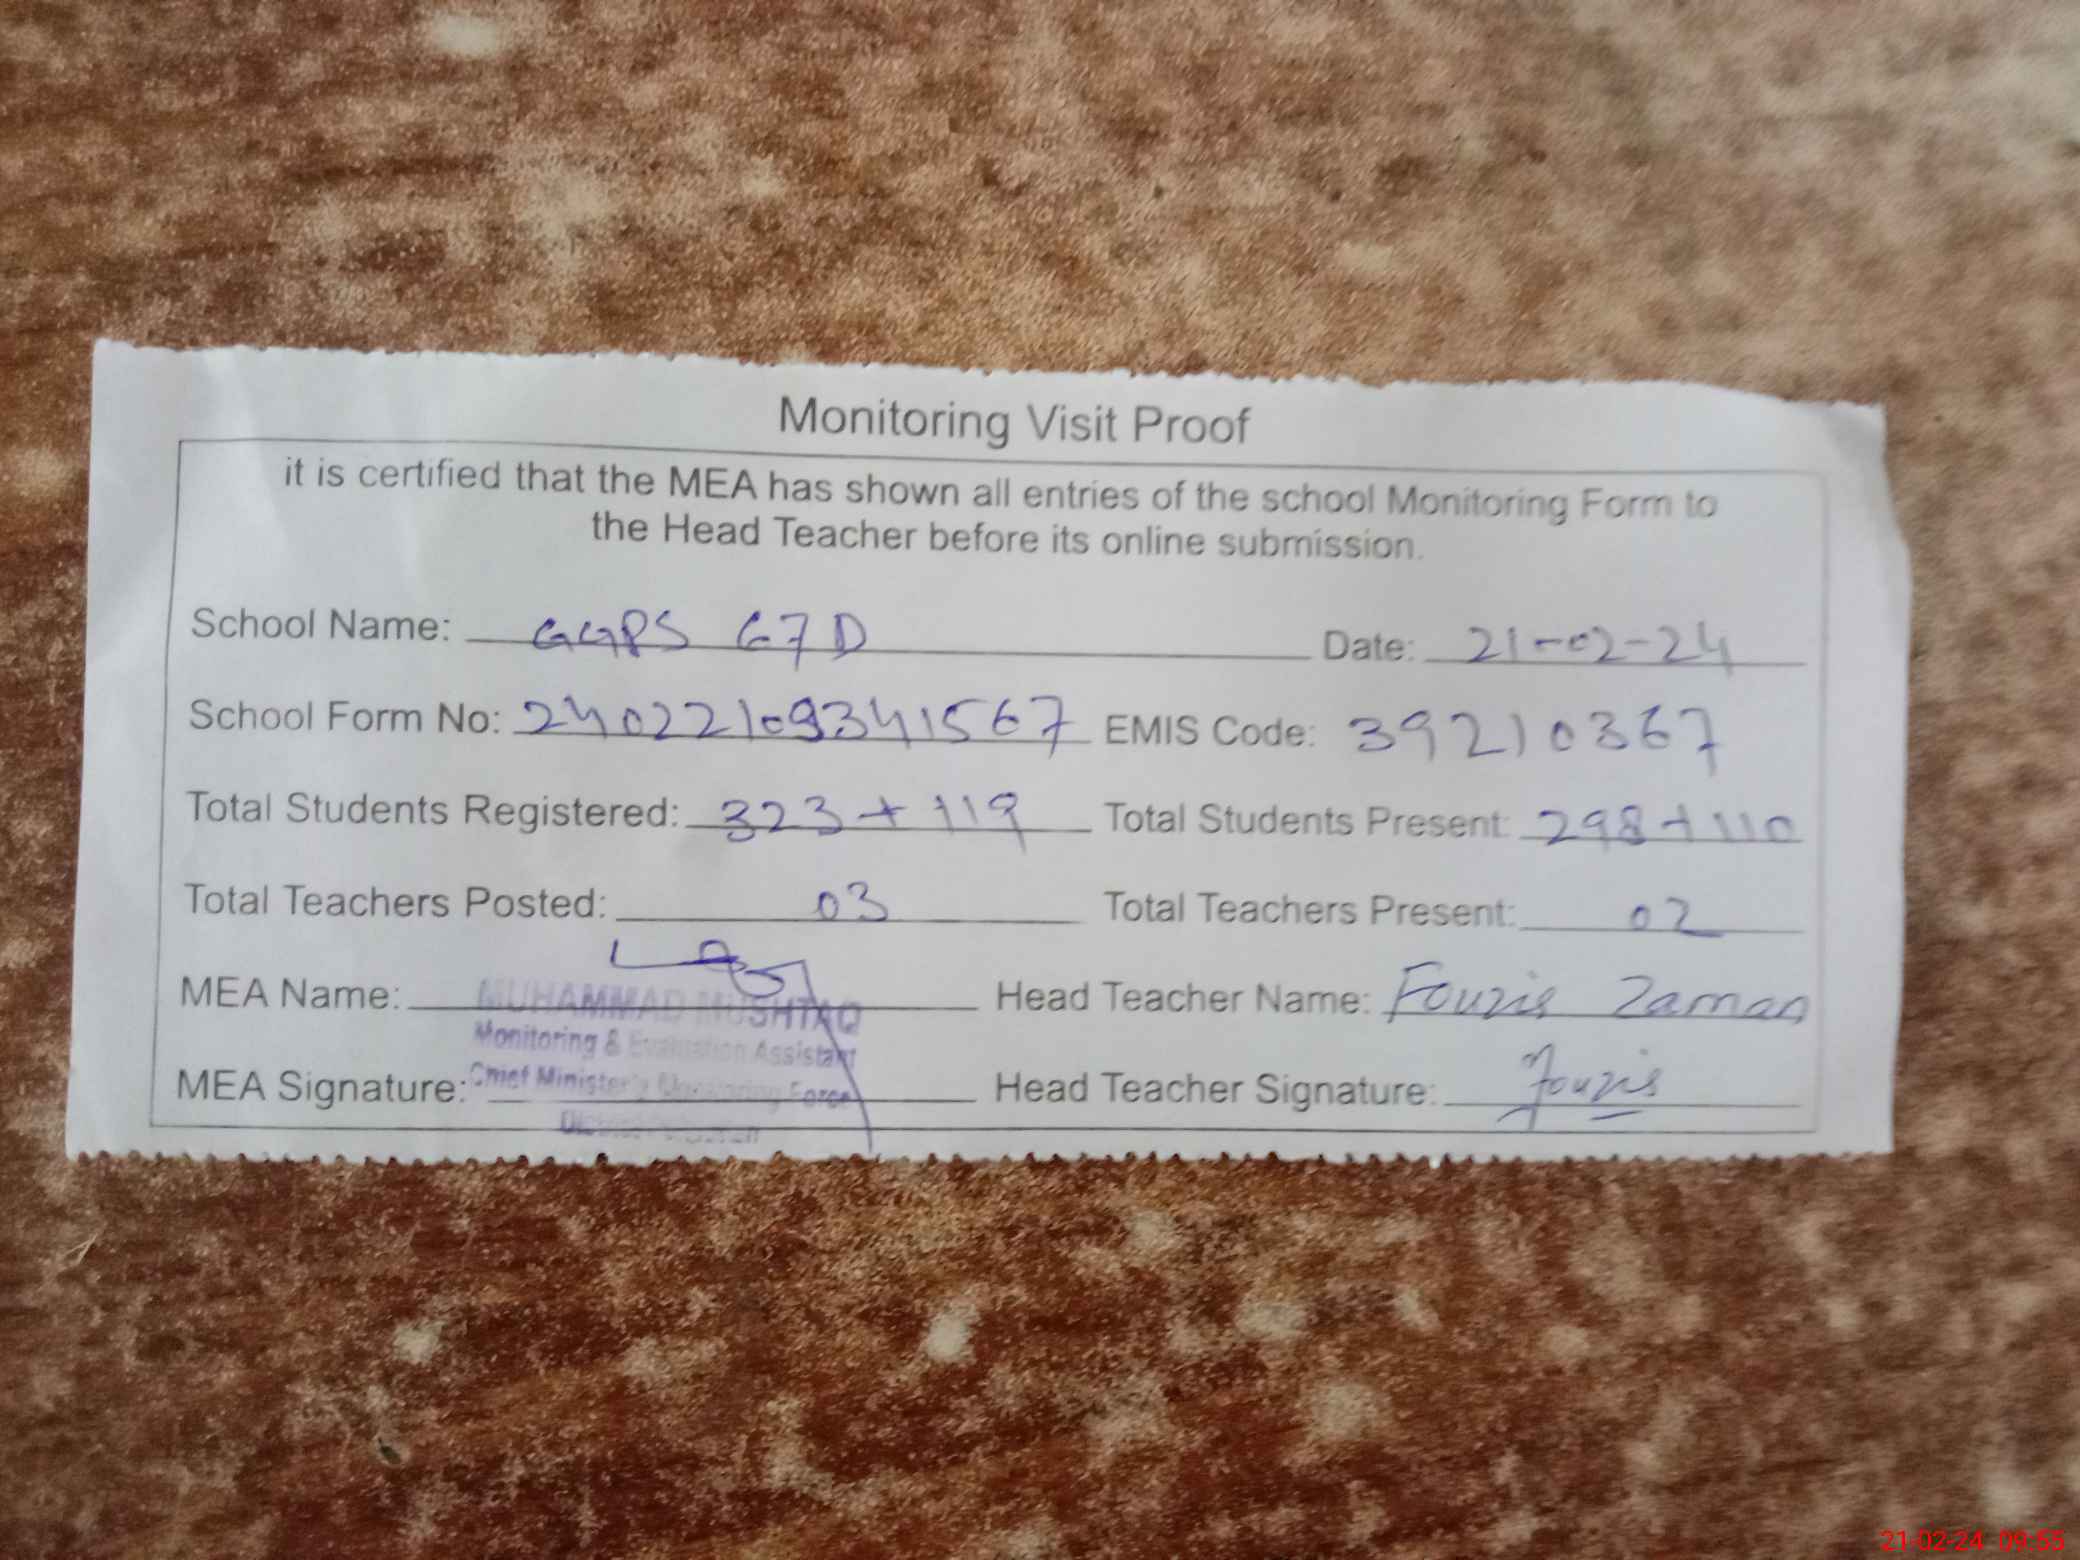 Monitoring Visit Proof
it is certified that the MEA has shown all entries of the school Monitoring Form to
the Head Teacher before its online submission.
School Name: GGPS 67D Date: 21-02-24
School Form No: 24022109341567 EMIS Code: 39210367
Total Students Registered: 323+119 Total Students Present: 298+110
Total Teachers Posted: 03 Total Teachers Present: 02
MEA Name: MUHAMMAD MUSHTAQ Head Teacher Name: Fouzia Zaman
Monitoring & Evaluation Assistant
MEA Signature: Chief Minister's Monitoring Force Head Teacher Signature: Fouzia
District
21-02-24 09:55